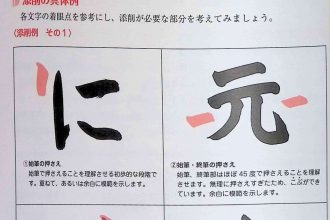 添削の具体例
各文字の着眼点を参考にし、添削が必要な部分を考えてみましょう。
(添削例 その1)
に
①始筆の押さえ
始筆で押さえることを理解させる初歩的な段階で
す。重ねて、あるいは余白に模範を示します。
元
②始筆・終筆の押さえ
始筆、終筆部はほぼ45度で押さえることを理解
させます。無理に押さえすぎたため、こぶができ
ています。余白に模範を示します。